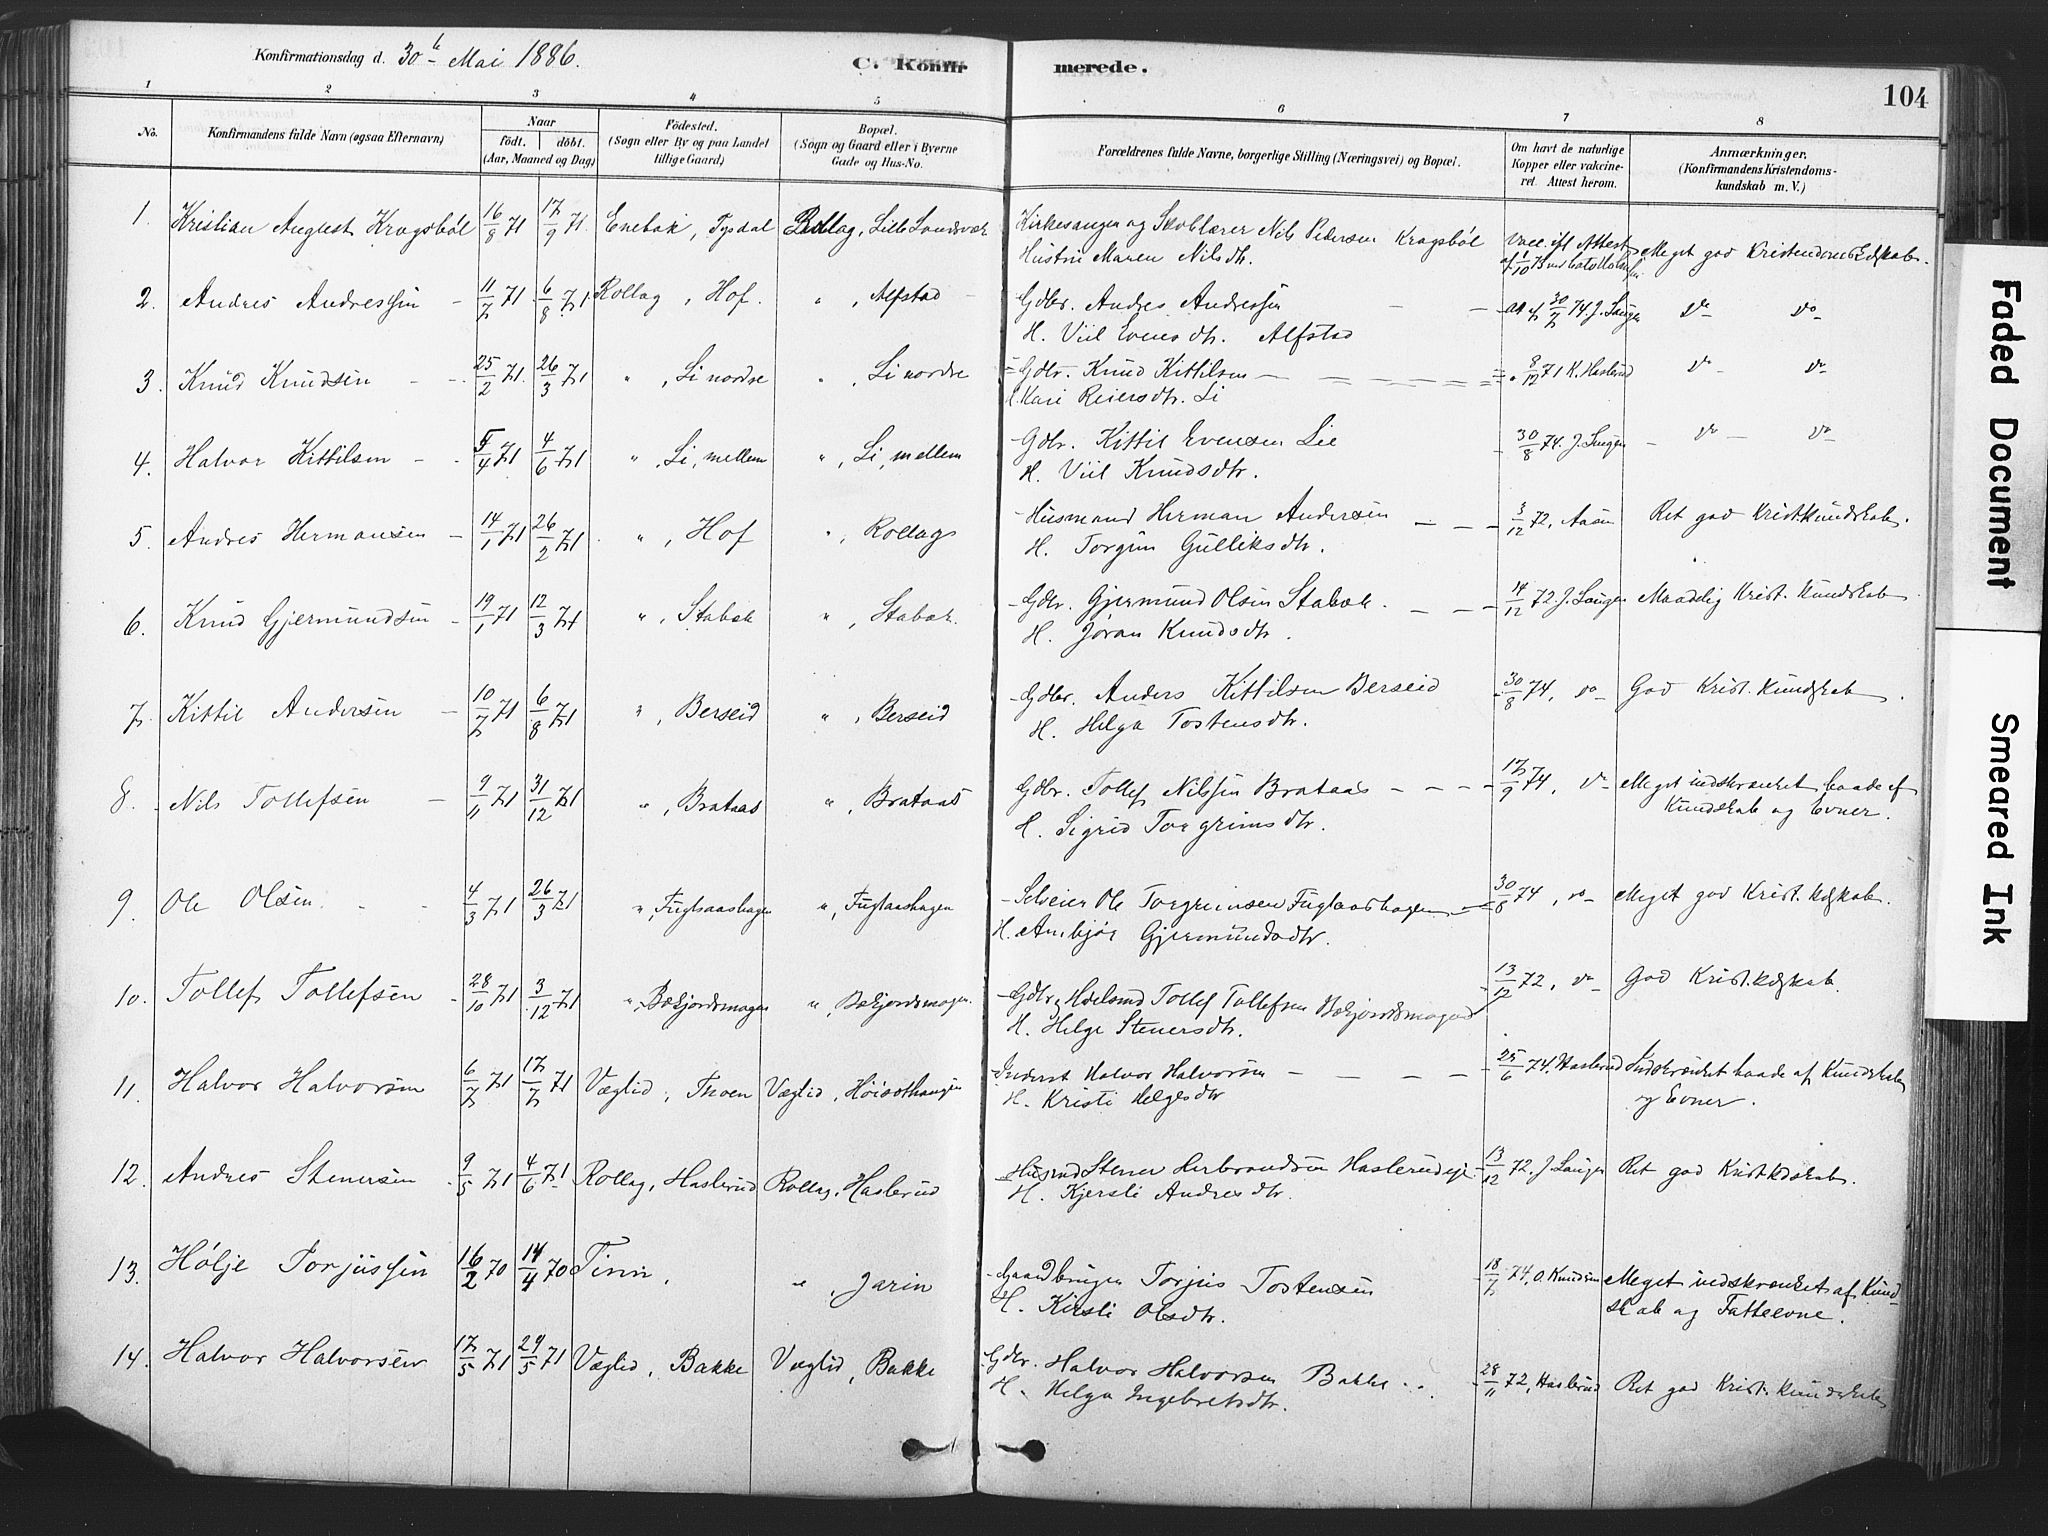 Konfirmationsdag d. 30te Mai 1886.
C. Konfirmerede.
104
1 2 3 4 5 6 7 8
No.
Konfirmandens fulde Navn (ogsaa Efternavn)
Naar
födt. döbt.
(Aar, Maaned og Dag)
Födested.
(Sogn eller By og paa Landet
tillige Gaard)
Bopæl.
(Sogn og Gaard eller i Byerne
Gade og Hus-No.
Forældrenes fulde Navne, borgerlige Stilling (Næringsvei) og Bopæl.
Om havt de naturlige
Kopper eller vakcine-
ret. Attest herom.
Anmærkninger.
(Konfirmandens Kristendoms-
kundskab m. V.)
1. Kristian August Kragsböl 16/8 71 17/9 71. Enebak, Tysdal Rollag, Kirkesanger og Skolelærer Nils Pedersen Kragsböl Vacc. ifl. Attest Meget god Kristendomskdskab.
Hustru Maren Nilsdtr.
2. Andres Andressen 11/7 71 6/8 71 Rollag, Hof. ", Alfstad Gdbr. Andres Andressen 30/7 74. J. Laugen do do
H. Viil Evensdtr. Alfstad
3. Knud Knudsen 25/2 71. 26/3 71 ", Li nordre ", Li nordre Gdbr. Knud Kittilsen 8/12 71 K. Haslerud do do
H. Kari Reiersdtr. Li
4. Halvor Kittilsen 5/4 71 4/6 71 ", Li, mellem ", Li, mellem Gdbr. Kittil Evensen Lie 30/8 74. J. Laugen do do
H. Viil Knudsdtr.
5. Andres Hermansen 14/1 71 26/2 71 ", Hof ", Rollags Husmand Herman Andersen 3/12 72, Aasen Ret god Krist.kundskab.
H. Torgun Gulliksdtr.
6. Knud Gjermundsen 19/1 71 12/3 71 ", Stabæk ", Stabæk. Gdbr. Gjermund Olsen Stabæk. 14/12 72. J. Laugen Maadelig Krist. Kundskab
H. Jöran Knudsdtr.
7. Kittil Andersen 10/7 71 6/8 71 ", Berseid ", Berseid Gdbr. Anders Kittilsen Berseid 30/8 74, do God Krist. kundskab.
H. Helga Tostensdtr.
8. Nils Tollefsen 9/11 71 31/12 71 ", Brataas ", Brataas Gdbr. Tollef Nilssen Brataas 17/9 74, do Meget indskrænket baade af
H. Sigrid Torgrimsdtr. Kundskab og Evner.
9. Ole Olsen 4/3 71 26/3 71 ", Fuglaashagen ", Fuglaashagen Selveier Ole Torgrimsen Fuglaashagen 30/8 74, do Meget god Krist. kdskab.
H. Anbjör Gjermundsdtr.
10. Tollef Tollefsen 28/10 71 3/12 71 ", Bækjordsmogen ", Bækjordsmogen. Gdbr. Tollef Tollefsen Bækjordsmogen 13/12 72, do God Krist.kdskab.
H. Helge Stenersdtr.
11. Halvor Halvorsen 6/7 71 17/7 71 Væglid, Thoen Væglid, Inderst Halvor Halvorsen 25/6 74. Haslerud Indskrænket baade af Kundskab
H. Kristi Helgesdtr og Evner.
12. Andres Stenersen 9/5 71 4/6 71 Rollag, Haslerud Rollag, Haslerud Husmd Stener Herbrandsen Haslerudeje 13/12 72. J. Laugen Ret god Krist.kdskab.
H. Kjersti Andresdtr.
13. Hölje Torjussen 16/2 70 14/4 70 Tinn, ", Jarin Gaardbruger Torjus Tostensen 18/7 74, O. Knudsen Meget indskrænket af Kund-
H. Kirsti Olsdtr. skab og Fatteevne.
14. Halvor Halvorsen 17/5 71 29/5 71 Væglid, Bakke Væglid, Bakke Gdbr. Halvor Halvorsen Bakke 28/11 72, Haslerud Ret god Krist. kundskab
H. Helga Ingebretsdtr.
Faded Document
Smeared Ink